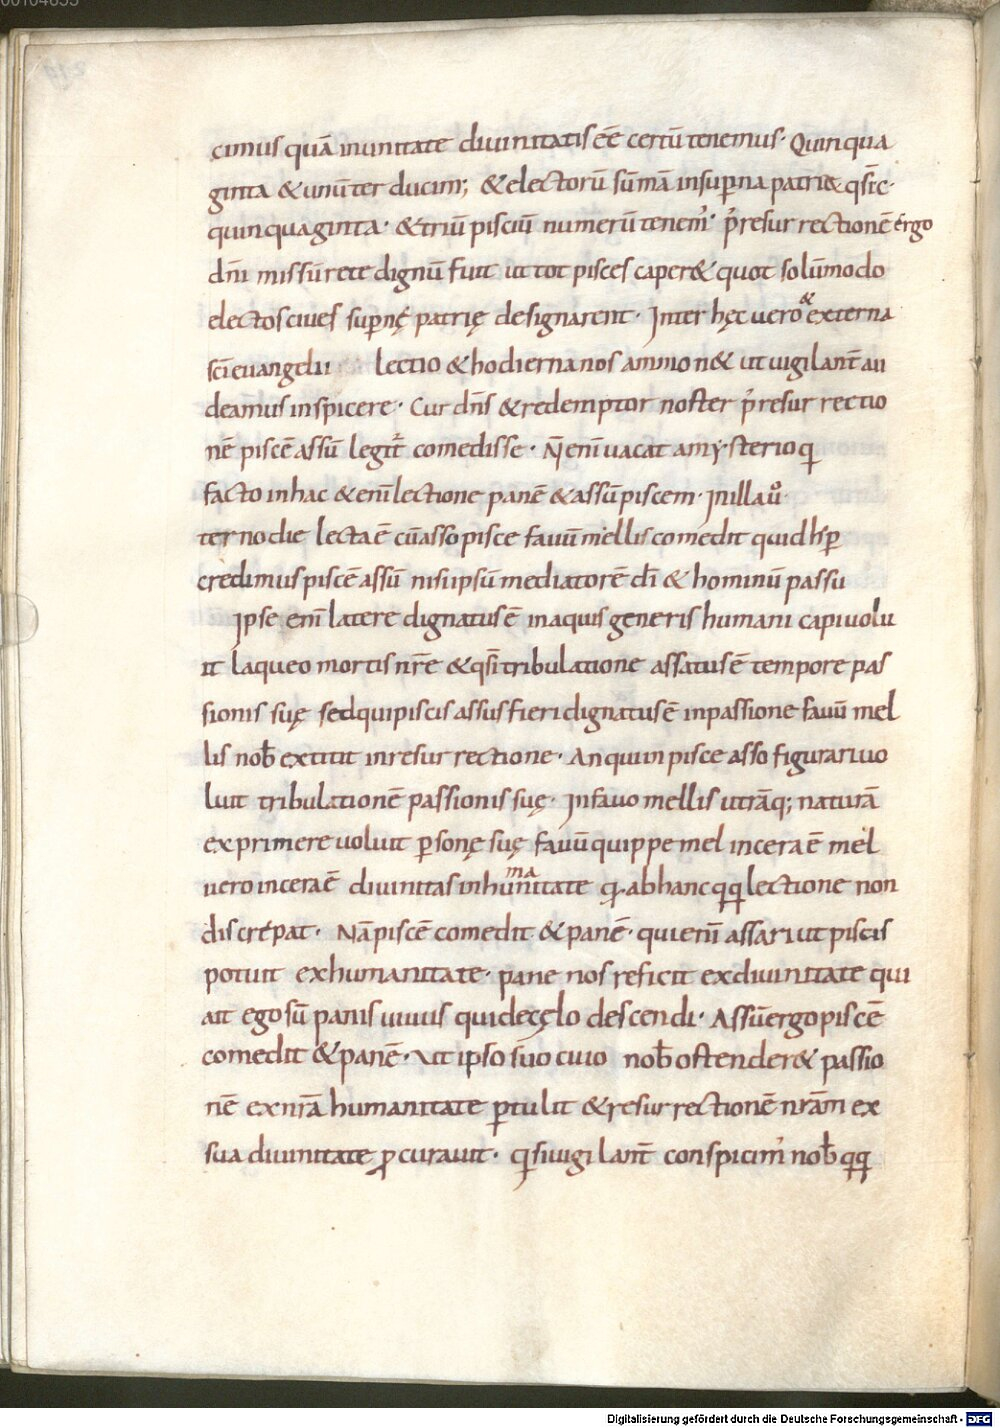 00104655
cimus quā in unitate diuinitatis eē certū tenemus · Quinqua
ginta & unū ter ducim; & electorū sūmā in superna patria
quinquaginta · & triū pisciū numerū tenem᷒ · p᷒ resurrectionē ergo
dn̄i missū rete dignū fuit ut tot pisces caper& quot solūmodo
electos ciues supernę patrię designarent · Inter hęc uero & externa
sc̄i euangelii lectio & hodierna nos ammon& ut uigilant̄ au
deamus inspicere · Cur dn̄s & redemptor noster p᷒ resurrectio
nē piscē assū legit᷒ comedisse · N̄ enī uacat a mysterio q
facto in hac & enī lectione panē & assū piscem · In illa ū
ter nodie lecta ē cū asso pisce fauū mellis comedit quid
credimus piscē assū nisi ipsū mediatorē dī & hominū passū
Ipse enī latere dignatus ē in aquis generis humani capi uolu
it laqueo mortis nr̄e & qsī tribulatione assatus ē tempore pas
sionis suę sed qui piscis assus fieri dignatus ē in passione fauū mel
lis nob̄ extitit in resurrectione · An qui in pisce asso figurari uo
luit tribulationē passionis suę · In fauo mellis utrāq; naturā
exprimere uoluit p̱sonę suę fauū quippe mel in cera ē mel
uero in cera ē diuinitas in humanitate q · ab hanc qq lectione non
discrepat · Nā piscē comedit & panē · qui enī assari ut piscis
potuit ex humanitate · pane nos reficit ex diuinitate qui
ait ego sū panis uiuus qui de cęlo descendi · Assū ergo piscē
comedit & panē · Ut ipso suo cuio nob̄ ostender& passio
nē ex nr̄a humanitate p̱tulit & resurrectionē nr̄am ex
sua diuinitate ꝓcurauit · q si uigilant̄ conspicim᷒ nob̄ qq
Digitalisierung gefördert durch die Deutsche Forschungsgemeinschaft - DFG